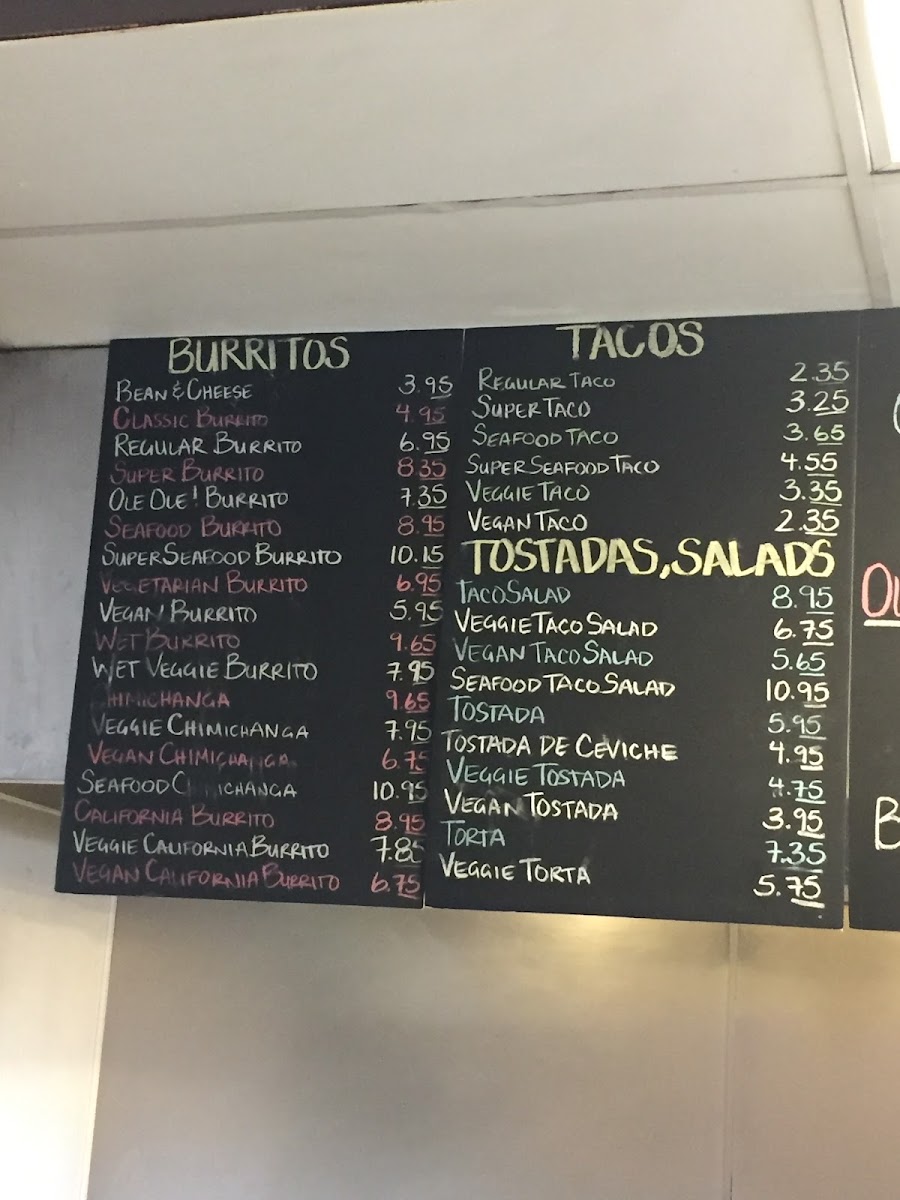 BURRITOS
BEAN & CHEESE 3.95
CLASSIC BURRITO 4.95
REGULAR BURRITO 6.95
SUPER BURRITO 8.35
OLE OLE! BURRITO 7.35
SEAFOOD BURRITO 8.95
SUPER SEAFOOD BURRITO 10.15
VEGETARIAN BURRITO 6.95
VEGAN BURRITO 5.95
WET BURRITO 9.65
WET VEGGIE BURRITO 7.95
CHIMICHANGA 9.65
VEGGIE CHIMICHANGA 7.95
VEGAN CHIMICHANGA 6.75
SEAFOOD CHIMICHANGA 10.95
CALIFORNIA BURRITO 8.95
VEGGIE CALIFORNIA BURRITO 7.85
VEGAN CALIFORNIA BURRITO 6.75
TACOS
REGULAR TACO 2.35
SUPER TACO 3.25
SEAFOOD TACO 3.65
SUPER SEAFOOD TACO 4.55
VEGGIE TACO 3.35
VEGAN TACO 2.35
TOSTADAS, SALADS
TACO SALAD 8.95
VEGGIE TACO SALAD 6.75
VEGAN TACO SALAD 5.65
SEAFOOD TACO SALAD 10.95
TOSTADA 5.95
TOSTADA DE CEVICHE 4.95
VEGGIE TOSTADA 4.75
VEGAN TOSTADA 3.95
TORTA 7.35
VEGGIE TORTA 5.75